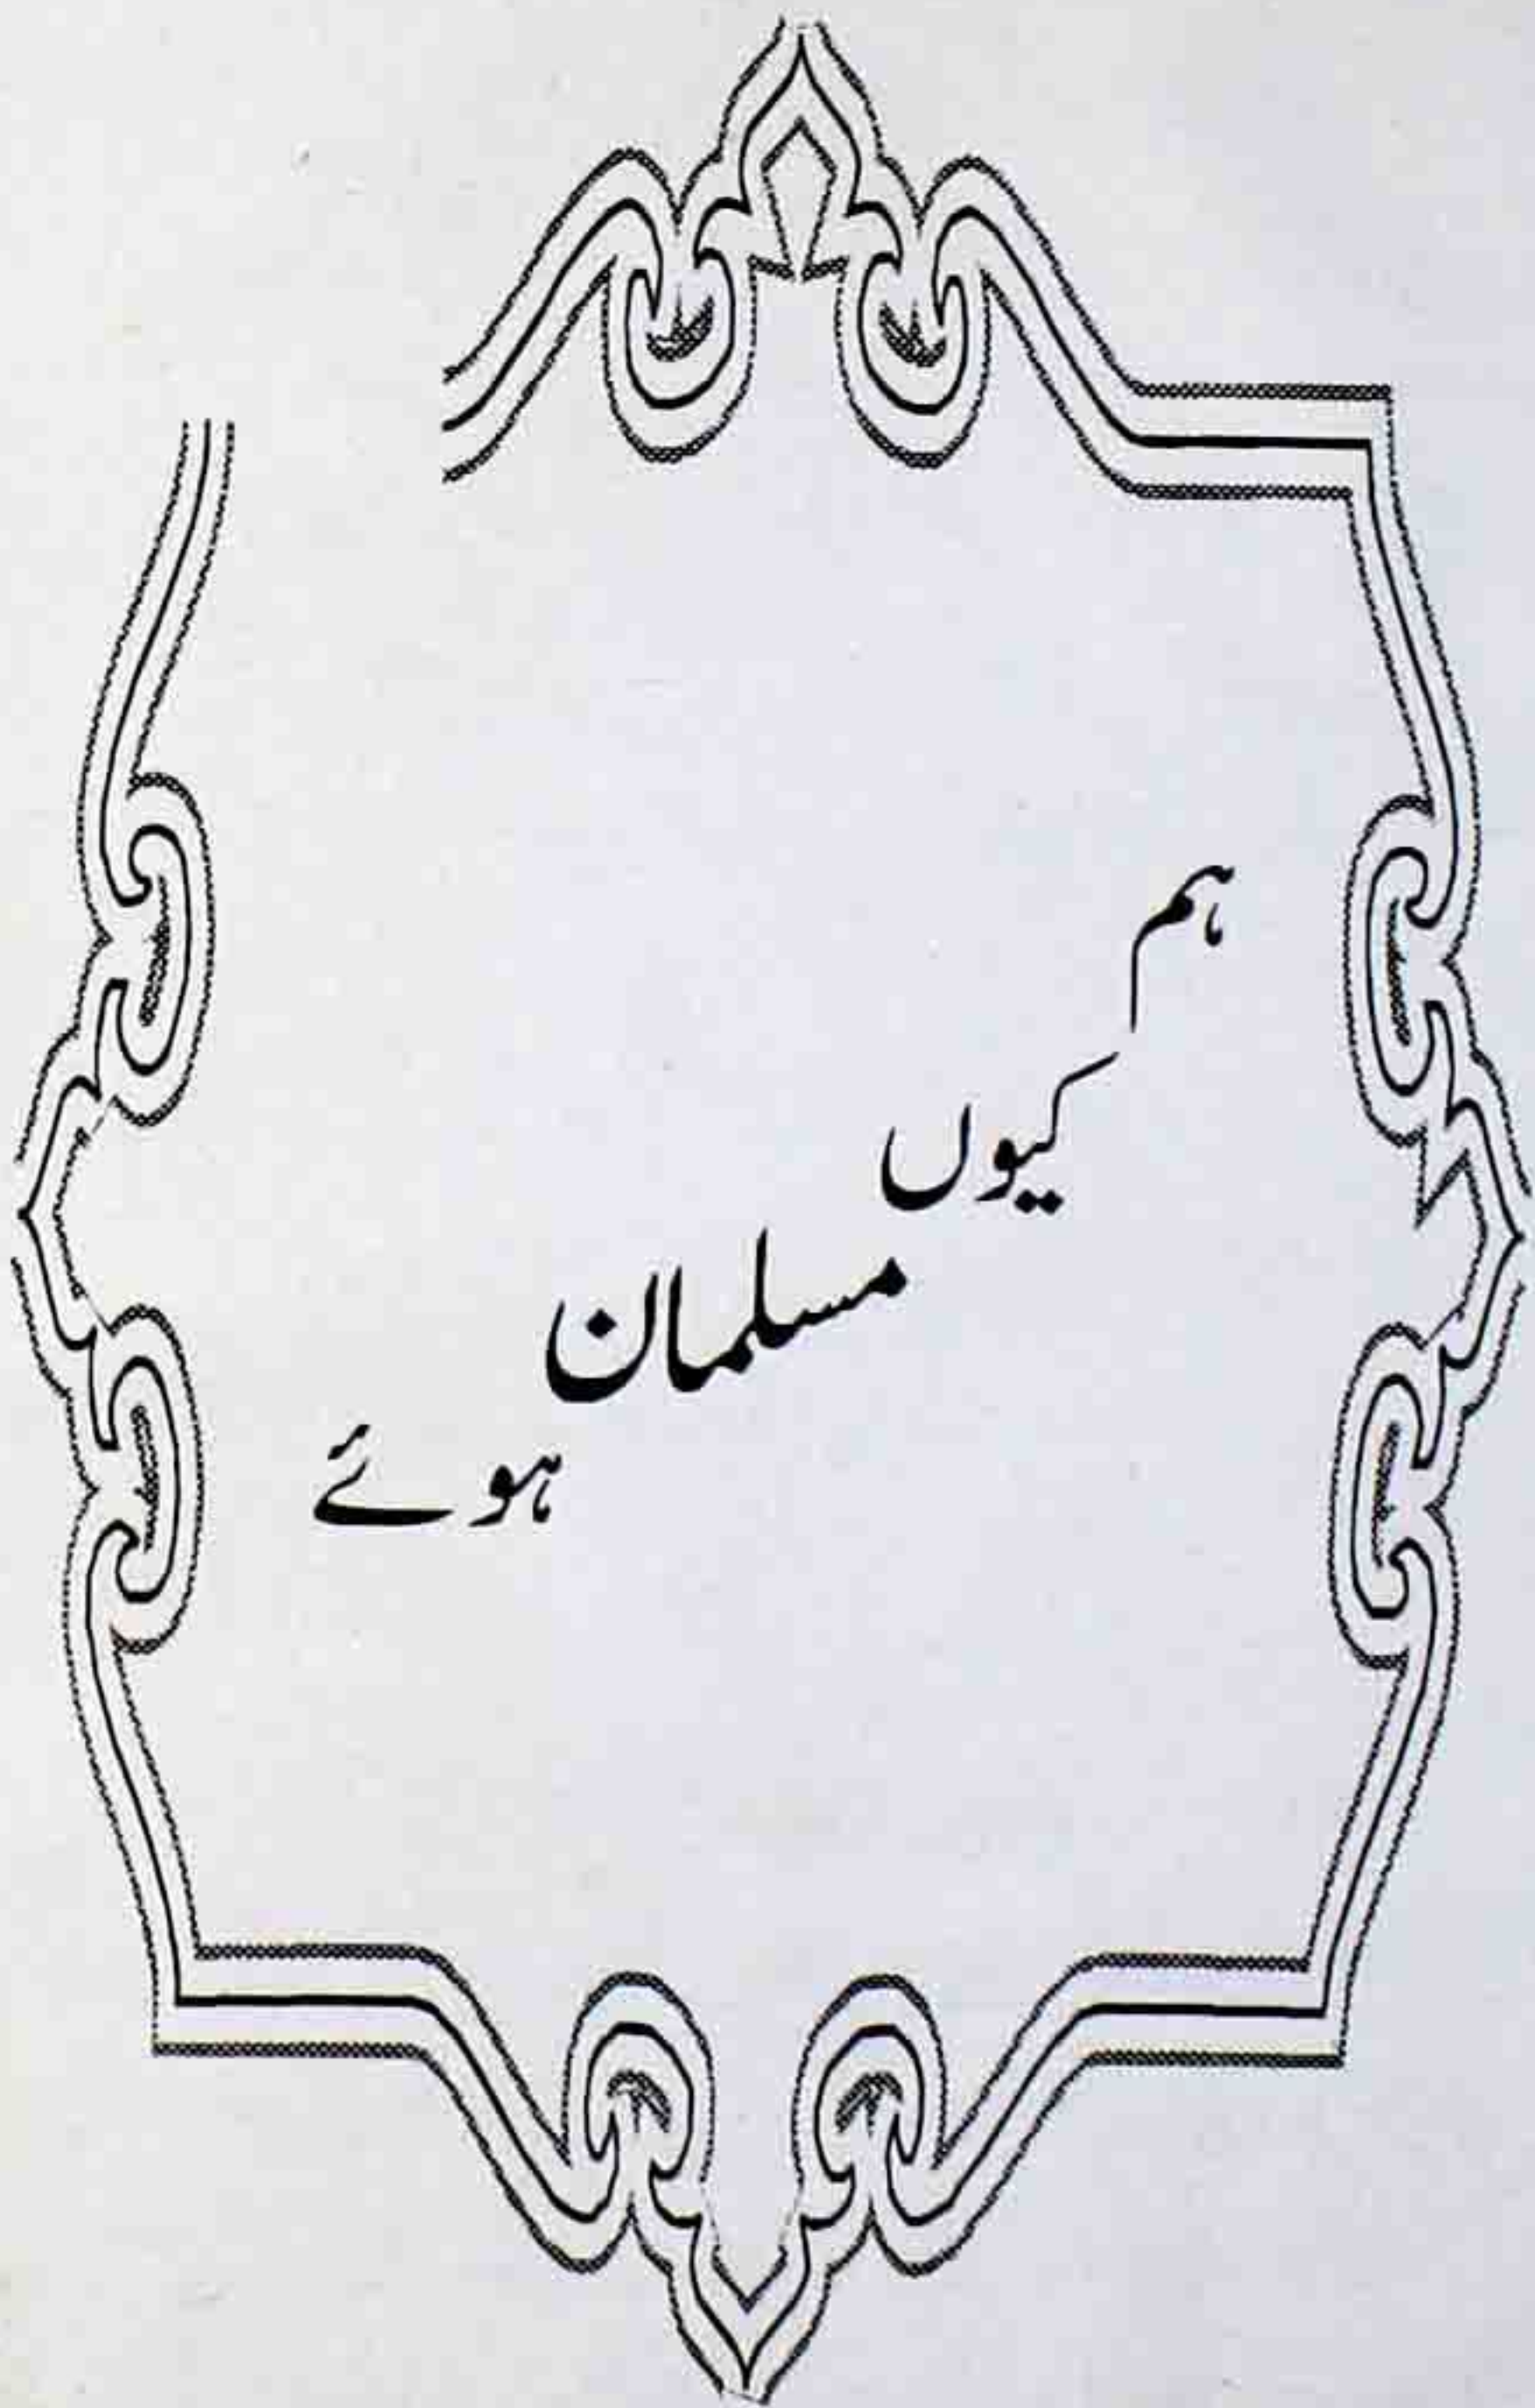 ہم
کیوں
مسلمان
ہوئے